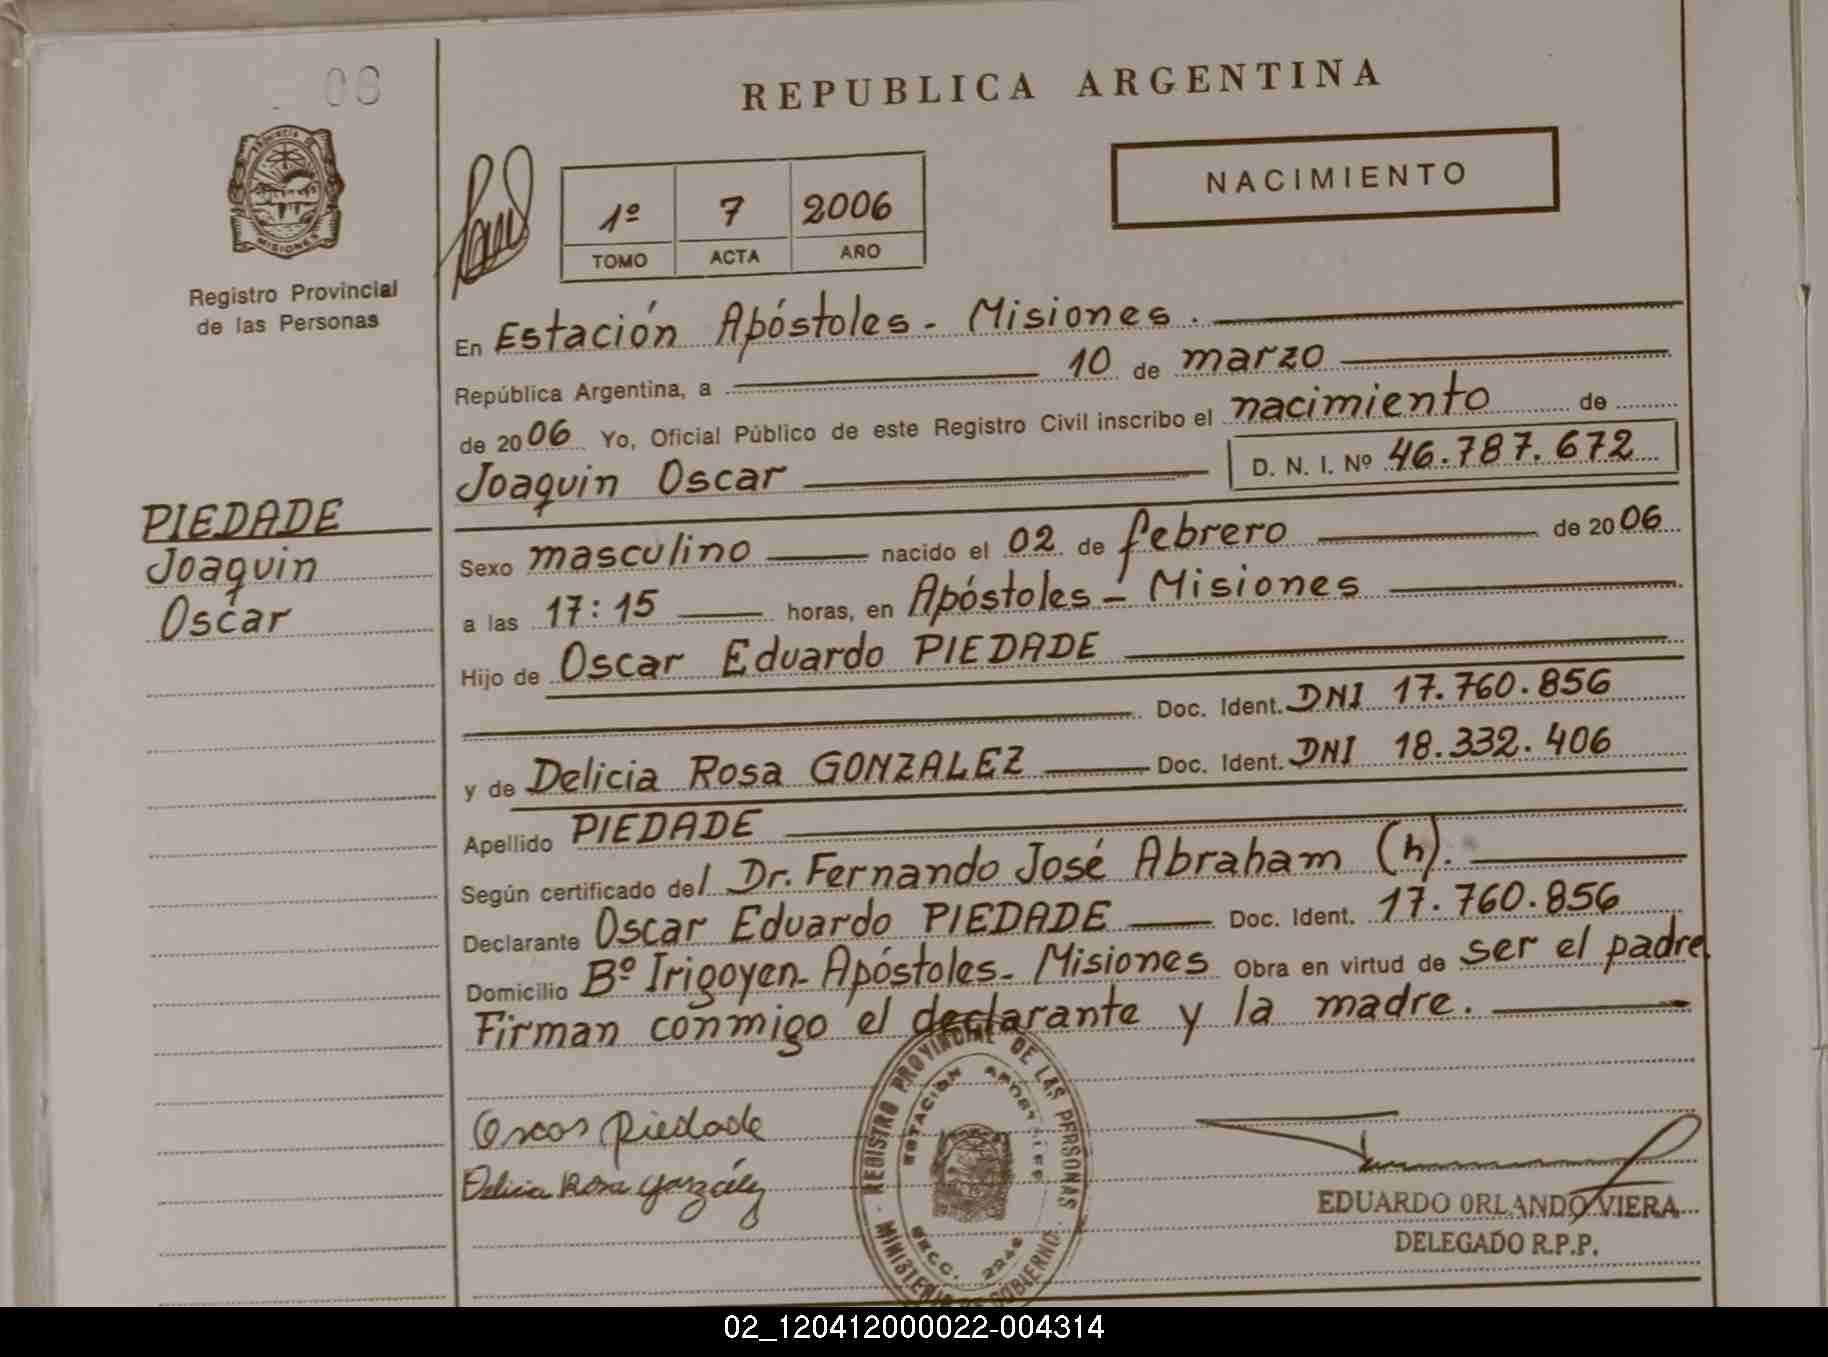 08
REPUBLICA ARGENTINA
PROVINCIA DE
MISIONES
Registro Provincial
de las Personas
1º 7 2006
TOMO ACTA AÑO
NACIMIENTO
En Estación Apóstoles - Misiones.
República Argentina, a 10 de marzo
de 2006 Yo, Oficial Público de este Registro Civil inscribo el nacimiento de
Joaquin Oscar D. N. I. Nº 46.787.672
PIEDADE
Joaquin
Oscar
Sexo masculino nacido el 02 de febrero de 2006
a las 17:15 horas, en Apóstoles - Misiones
Hijo de Oscar Eduardo PIEDADE
Doc. Ident. DNI 17.760.856
y de Delicia Rosa GONZALEZ Doc. Ident. DNI 18.332.406
Apellido PIEDADE
Según certificado del Dr. Fernando José Abraham (h).
Declarante Oscar Eduardo PIEDADE Doc. Ident. 17.760.856
Domicilio Bº Irigoyen - Apóstoles - Misiones Obra en virtud de ser el padre.
Firman conmigo el declarante y la madre.
Oscar Piedade
Delicia Rosa González
REGISTRO PROVINCIAL DE LAS PERSONAS
ESTACION APOSTOLES
SECC. 2248
MINISTERIO DE GOBIERNO
EDUARDO ORLANDO VIERA
DELEGADO R.P.P.
02_120412000022-004314